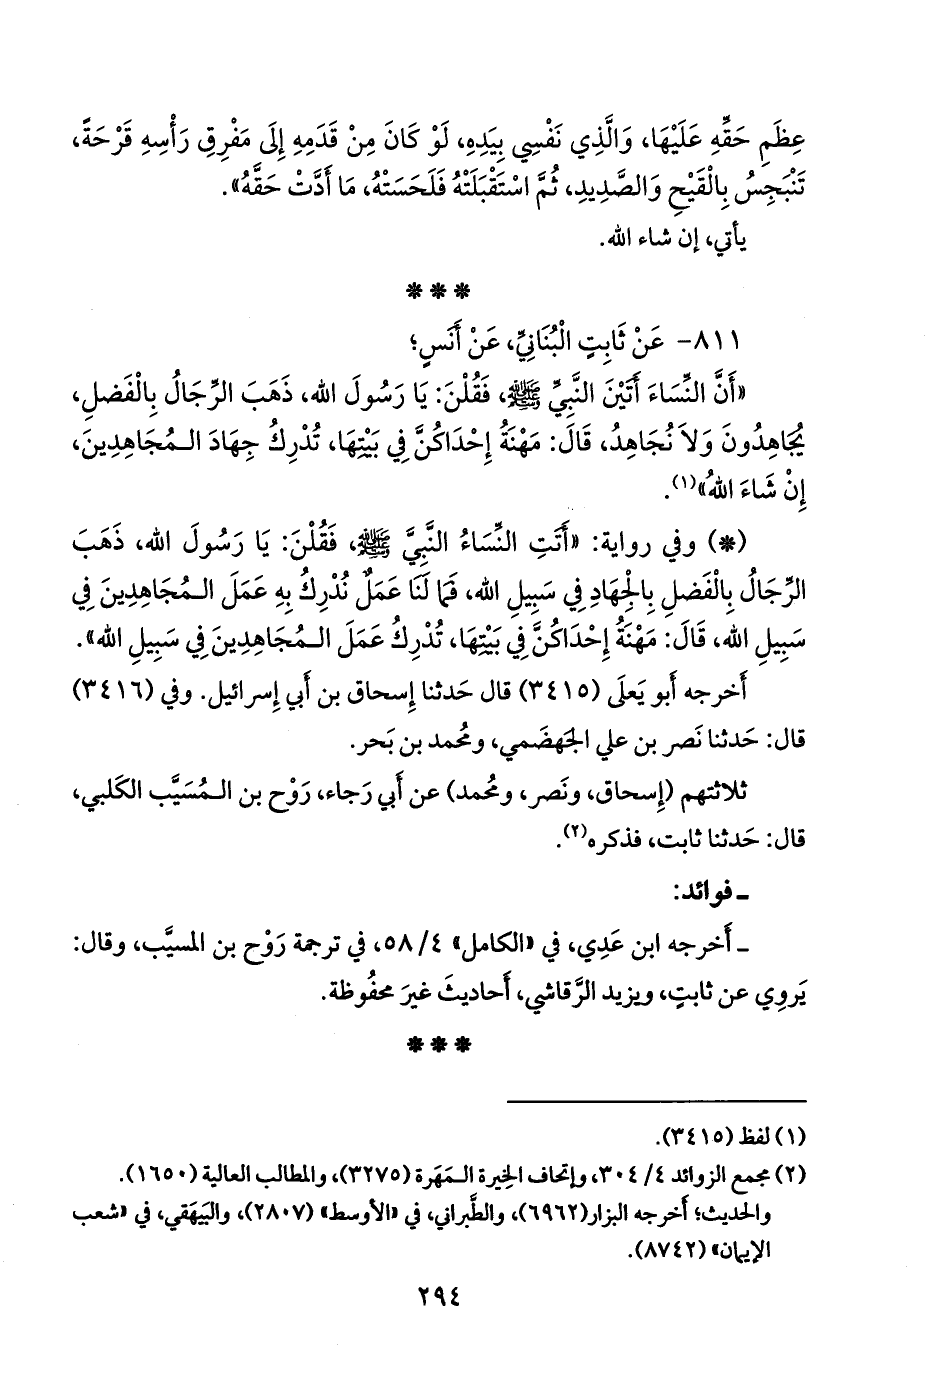 عِظَمِ حَقِّهِ عَلَيْهَا، وَالَّذِي نَفْسِي بِيَدِهِ، لَوْ كَانَ مِنْ قَدَمِهِ إِلَى مَفْرِقِ رَأْسِهِ قَرْحَةً،
تَنْبَجِسُ بِالْقَيْحِ وَالصَّدِيدِ، ثُمَّ اسْتَقْبَلَتْهُ فَلَحَسَتْهُ، مَا أَدَّتْ حَقَّهُ».
يأتي، إن شاء الله.
* * *
٨١١- عَنْ ثَابِتٍ الْبُنَانِيِّ، عَنْ أَنَسٍ؛
«أَنَّ النِّسَاءَ أَتَيْنَ النَّبِيَّ ﷺ، فَقُلْنَ: يَا رَسُولَ الله، ذَهَبَ الرِّجَالُ بِالْفَضلِ،
يُجَاهِدُونَ وَلاَ نُجَاهِدُ، قَالَ: مَهْنَةُ إِحْدَاكُنَّ فِي بَيْتِهَا، تُدْرِكُ جِهَادَ الـمُجَاهِدِينَ،
إِنْ شَاءَ اللهُ»(١).
(*) وفي رواية: «أَتَتِ النِّسَاءُ النَّبِيَّ ﷺ، فَقُلْنَ: يَا رَسُولَ الله، ذَهَبَ
الرِّجَالُ بِالْفَضلِ بِالْجِهَادِ فِي سَبِيلِ الله، فَمَا لَنَا عَمَلٌ نُدْرِكُ بِهِ عَمَلَ الـمُجَاهِدِينَ فِي
سَبِيلِ الله، قَالَ: مَهْنَةُ إِحْدَاكُنَّ فِي بَيْتِهَا، تُدْرِكُ عَمَلَ الـمُجَاهِدِينَ فِي سَبِيلِ الله».
أَخرجه أَبو يَعلَى (٣٤١٥) قال حَدثنا إِسحاق بن أَبي إِسرائيل. وفي (٣٤١٦)
قال: حَدثنا نَصر بن علي الجَهضَمي، ومُحمد بن بَحر.
ثلاثتهم (إِسحاق، ونَصر، ومُحمد) عن أَبي رَجاء، رَوْح بن الـمُسَيَّب الكَلبي،
قال: حَدثنا ثابت، فذكره(٢).
ـ فوائد:
ـ أَخرجه ابن عَدِي، في «الكامل» ٤/ ٥٨، في ترجمة رَوْح بن المسيَّب، وقال:
يَروِي عن ثابتٍ، ويزيد الرَّقاشي، أَحاديثَ غيرَ محفُوظة.
* * *
(١) لفظ (٣٤١٥).
(٢) مجمع الزوائد ٤/ ٣٠٤، وإتحاف الخِيرة الـمَهَرة (٣٢٧٥)، والمطالب العالية (١٦٥٠).
والحديث؛ أَخرجه البزار(٦٩٦٢)، والطَّبراني، في «الأوسط» (٢٨٠٧)، والبَيهَقي، في «شعب
الإيمان» (٨٧٤٢).
٢٩٤